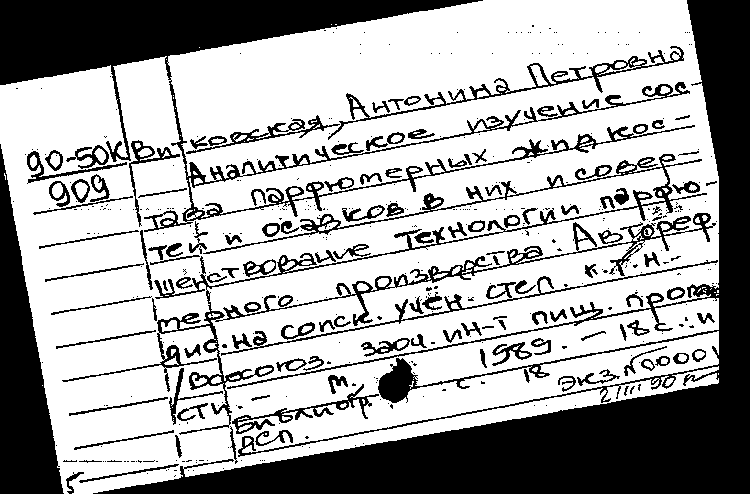 90-50К Витковская, Антонина Петровна
909 Аналитическое изучение сос-
тава парфюмерных жидкос-
тей и осадков в них и совер-
шенствование технологии парфю-
мерного производства: Автореф.
дис. на соиск. учён. степ. к.т.н. -
/Всесоюз. заоч. ин-т пищ. пром-
сти. - М., 1989. - 18 с.: и
Библиогр. с. 18
ДСП. Экз. №00001
2/III 90
5